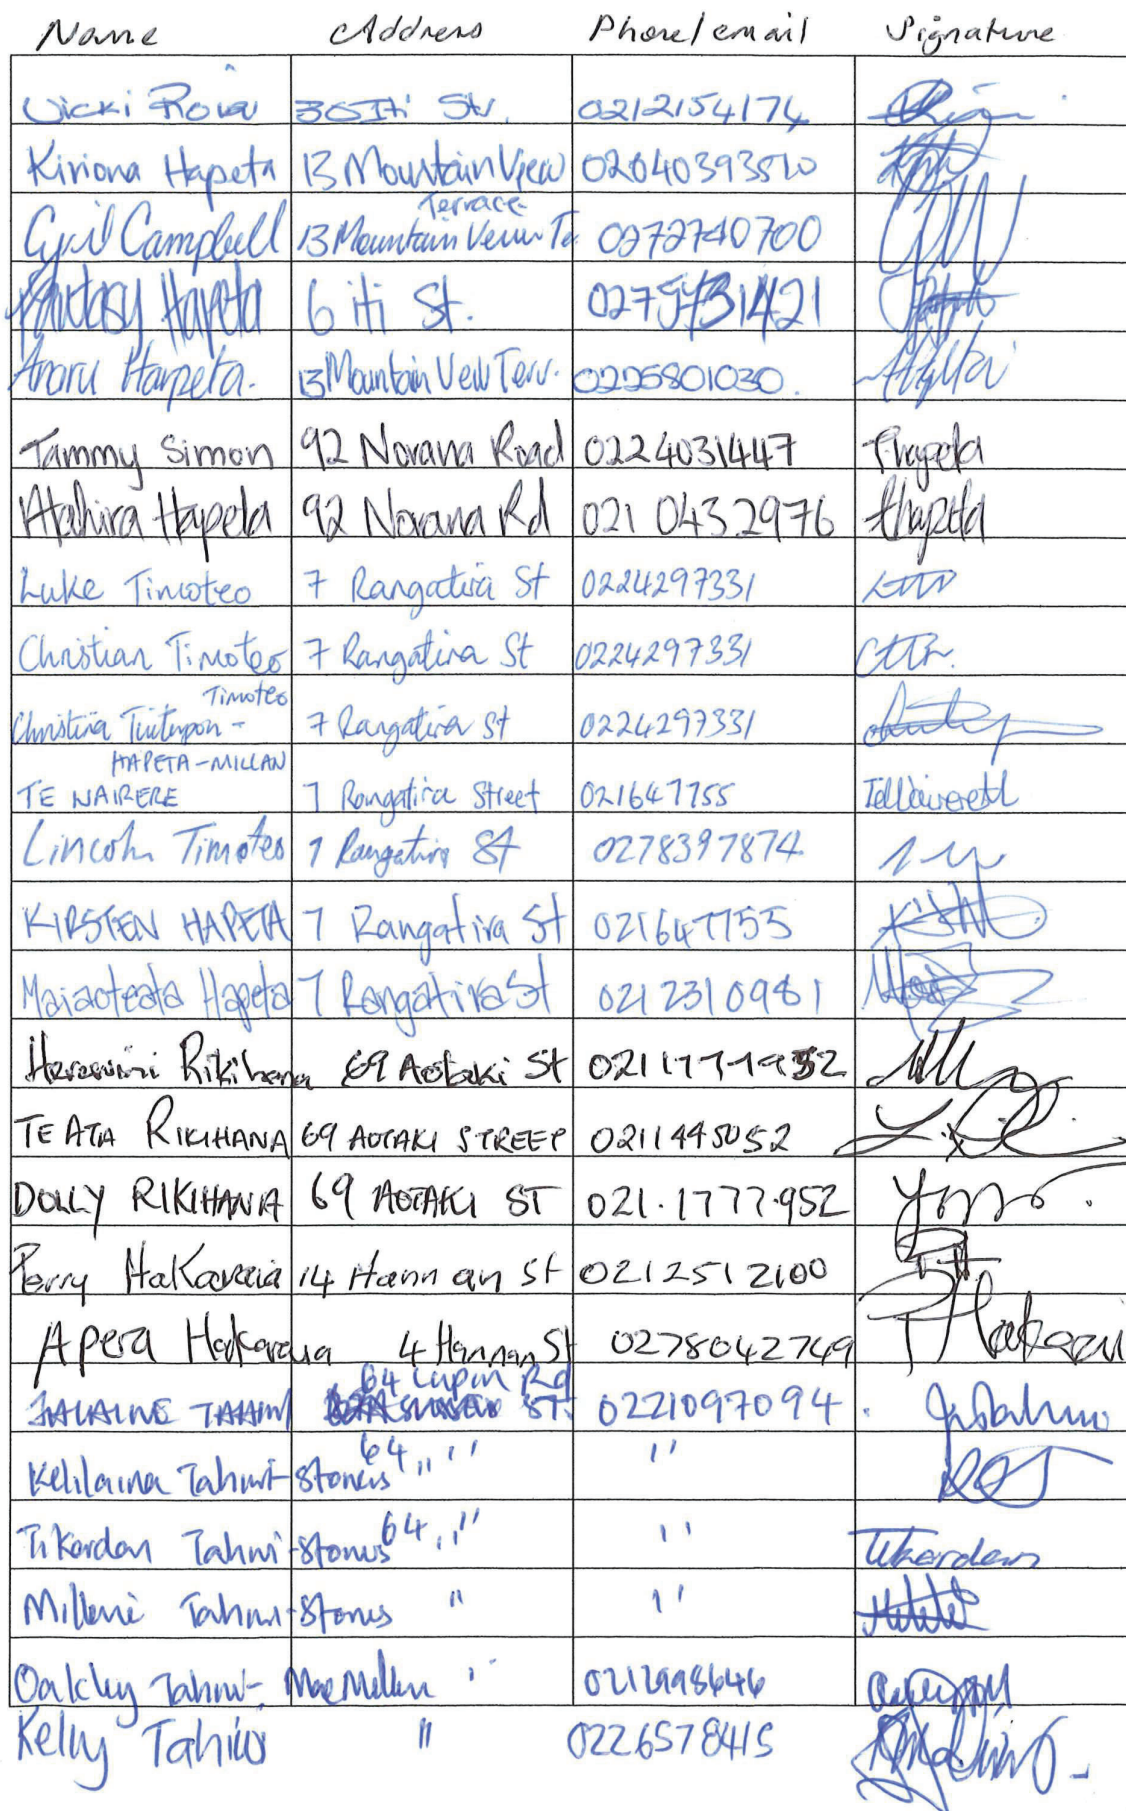 Name Address Phone/email Signature
Vicki Roiri 30 Iti St. 0212154174
Kiriona Hapeta 13 Mountain View 02040393510
Terrace
Cyril Campbell 13 Mountain Veiw Te 0272740700
Fantasy Hapeta 6 iti St. 0279731421
Anaru Hapeta. 13 Mountain Veiw Terr. 0225801030.
Tammy Simon 92 Novana Road 0224031447 Thapeta
Atahira Hapeta 92 Novana Rd 021 0432976 Ahapeta
Luke Timoteo 7 Rangatira St 0224297331
Christian Timoteo 7 Rangatira St 0224297331
Timoteo
Christina 7 Rangatira St 0224297331
HAPETA-MILLAN
TE NAIRERE 7 Rangatira Street 021647755
Lincoln Timoteo 7 Rangatira St 0278397874
KIRSTEN HAPETA 7 Rangatira St 021647755
Maiaoteata Hapeta 7 Rangatira St 0212310981
Herewini Rikihana 69 Aotaki St 0211777952
TE ATA RIKIHANA 69 AOTAKI STREET 0211445052
DOLLY RIKIHANA 69 AOTAKI ST 021.1777952
Perry HaKaraia 14 Hannan St 0212512100
Apera Hakaraia 4 Hannan St 0278042749
64 Lupin Rd
TAHIWI ST. 0221097094.
Kelilaina Tahiwi-Stones 64 " " "
Tikordan Tahiwi-Stones 64 " " " Tikordan
Millene Tahiwi-Stones " "
Oakley Tahiwi-MacMillan " 0212998646
Kelly Tahiwi " 0226578415